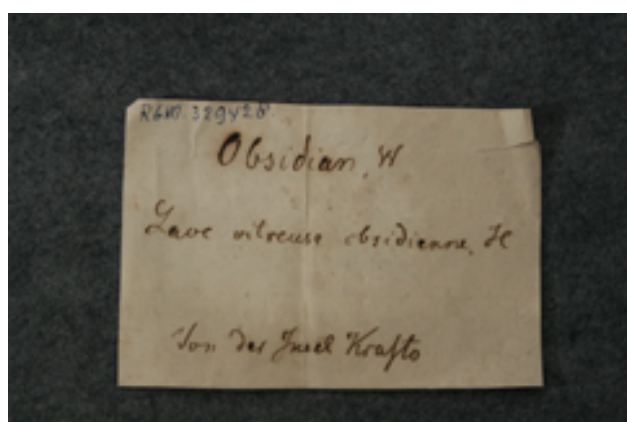 RGM. 329428.
Obsidian, W
Lave vitreuse obsidienne, H
Von der Insel Krafto